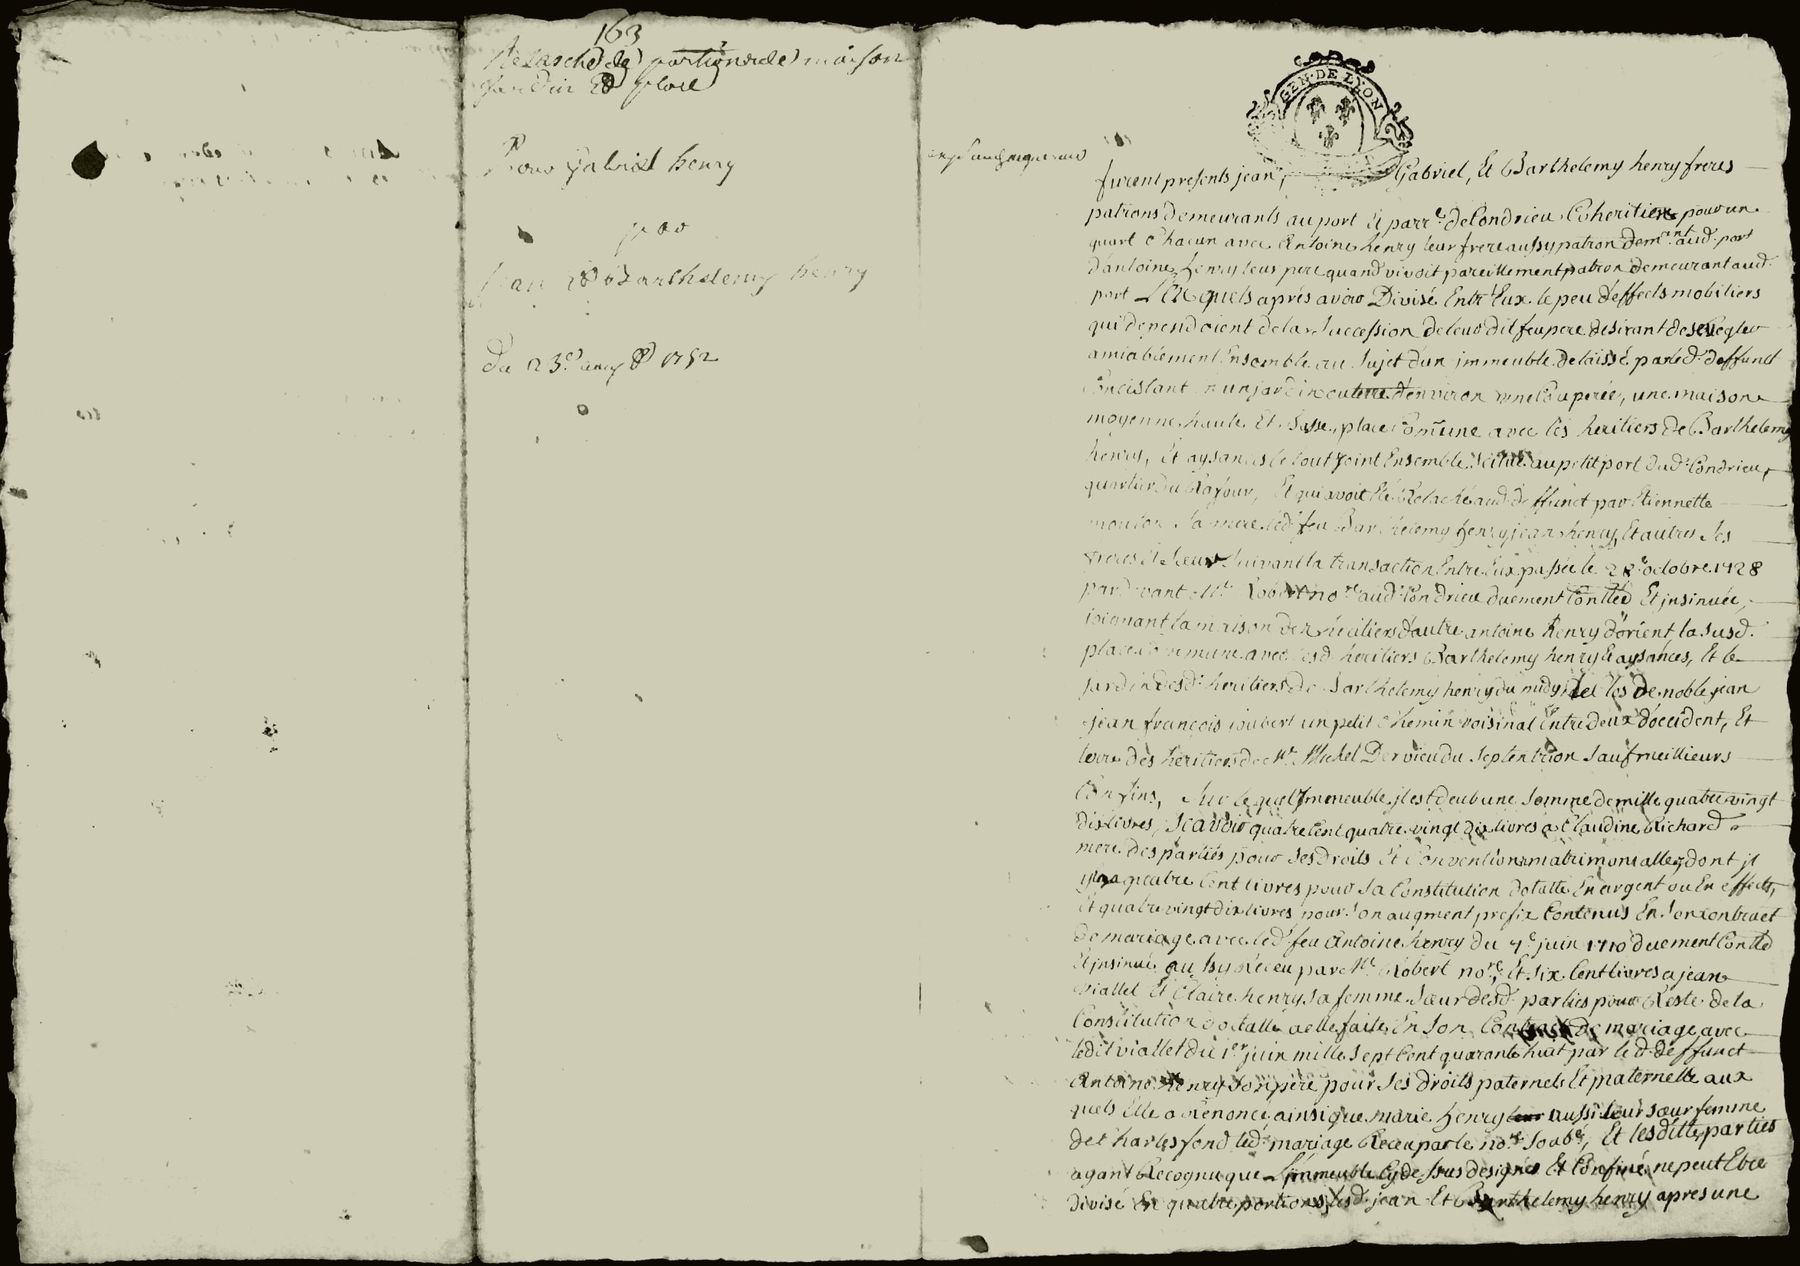 163
Relasche de portions de maison
Jardin & place
Pour Gabriel henry
par
Jean & Barthelemy henry
Du 23e 1752
GEN. DE LYON
furent presents jean, Gabriel, Et Barthelemy henry freres
patrons demeurants au port Et parr.e de Condrieu Coheritiers pour un
quart Chacun avec Antoine henry leur frere aussy patron dem.ant aud. port
d'antoine henry leur pere quand vivoit pareillement patron demeurant aud.
port Lesquels aprés avoir Divisé Entr'Eux le peu d'effects mobiliers
qui dependoient de la Succession de leur dit feu pere desirant de se Regler
amiablement Ensemble au Sujet d'un jmmeuble delaissé par led. deffunct
Concistant En un jardin ou terre d'environ une Couperée, une maison
moyenne, haute Et Basse, place Comune avec les heritiers de Barthelemy
henry, Et aysances le tout joint Ensemble Scitué au petit port dud. Condrieu,
quartier du Rafour, Et qui avoit Eté Relaché aud. deffunct par Etiennette
mouton Sa mere led. feu Barthelemy henry, jean henry, Et autres Ses
freres Et Soeur Suivant la transaction Entre Eux passée le 28e octobre 1728
pardevant Me Robert no.re aud. Condrieu duement Contllé Et jnsinuée,
joignant la maison des heritiers d'autre antoine henry d'orient, la susd.
place Commune avec lesd. heritiers Barthelemy henry Et aysances, Et le
jardin desd. heritiers de Barthelemy henry du midy, de noble jean
jean françois joubert un petit Chemin voisinal Entre deux d'occident, Et
terre des heritiers de Me Michel Dervieu du Septentrion Sauf meillieurs
Confins, Sur lequel jmmeuble jl est deub une Somme de mille quatre vingt
dix livres, Scavoir quatre Cent quatre vingt dix livres a Claudine Richard
mere des parties pour Ses droits Et Conventions matrimonialles, dont jl
y a quatre Cent livres pour Sa Constitution dotalle En argent ou En effects,
Et quatre vingt dix livres pour Son augment prefix Contenus En Son contract
de mariage avec led. feu Antoine henry du 7e juin 1710 duement Contllé
Et jnsinué aussy Receu par Me Robert no.re, Et Six Cent livres a jean
Viallet Et Claire henry Sa femme Sœur desd. parties pour Reste de la
Constitution dotalle a elle faite En Son Contract de mariage avec
ledit viallet du 1er juin mille Sept Cent quarante huit par led. deffunct
Antoine henry Son pere pour Ses droits paternels Et maternelle aux
quels Elle a Renoncé ainsi que marie henry aussi leur sœur femme
de Charles fond led. mariage Receu par le no.re Soub.é, Et lesdittes parties
ayant Recognu que L'jmmeuble Cy dessus designé Et Confiné ne peut Etre
divisé En quatre portions, lesd. jean Et Barthelemy henry apres une